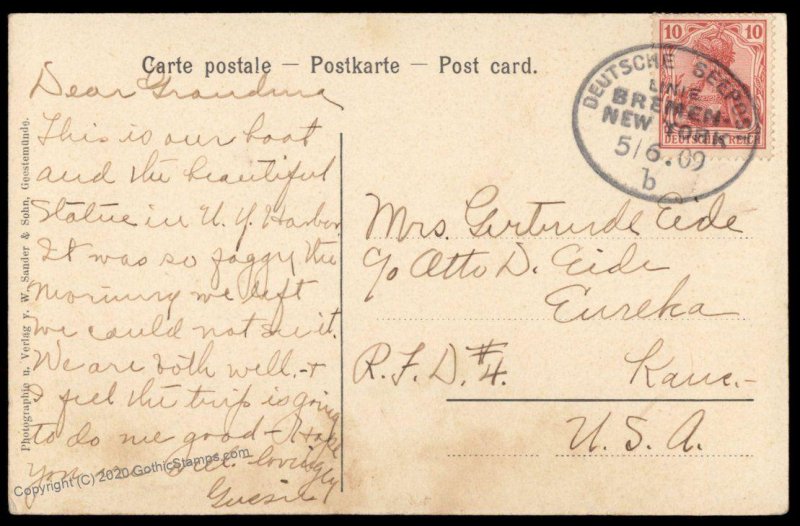 Carte postale — Postkarte — Post card.
10 10
DEUTSCHES REICH
DEUTSCHE SEEPOST
LINIE
BREMEN-
NEW YORK
5/6.09
b
Dear Grandma
This is our boat
and the beautiful
Statue in N. Y. Harbor.
It was so foggy the
morning we left
we could not see it.
We are both well.- &
I feel the trip is going
to do me good - Hope
you are well. lovingly
Mrs. Gertrude Eide
c/o Otto D. Eide
Eureka
R.F.D. #4. Kans.-
U.S.A.
Photographie u. Verlag v. W. Sander & Sohn, Geestemünde.
Copyright (C) 2020 GothicStamps.com